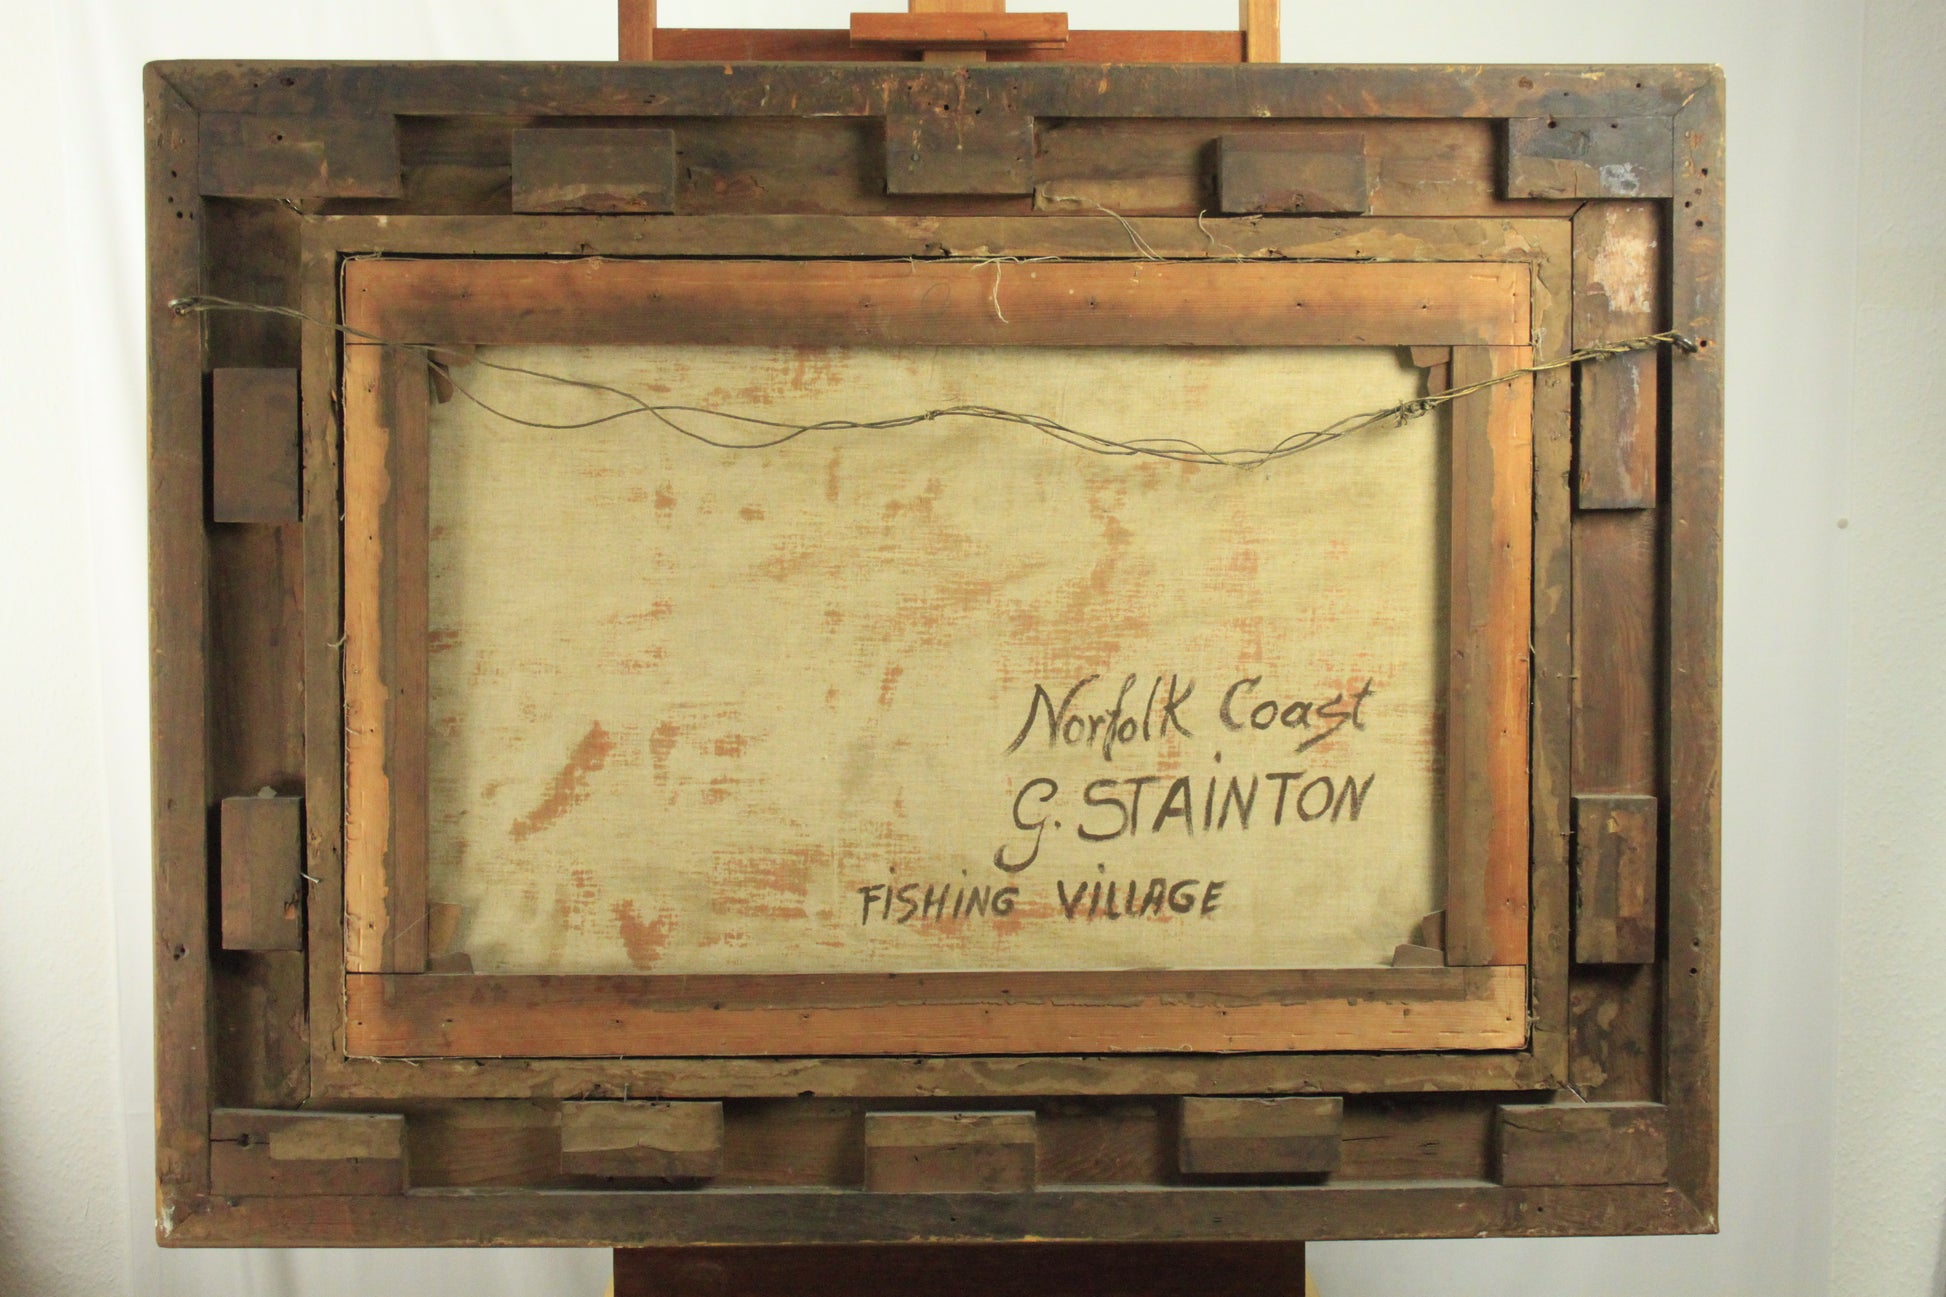 Norfolk Coast
G. STAINTON
FISHING VILLAGE